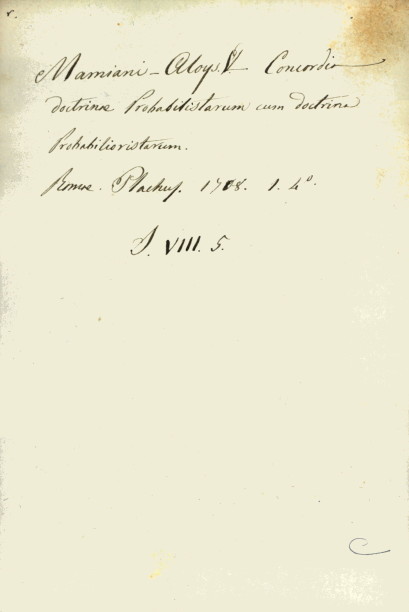 Mamiani - Aloys. V. Concordia
doctrinae Probabilistarum cum doctrina
Probabilioristarum.
Romae. Plachus. 1708. 1. 4°.
VIII. 5.